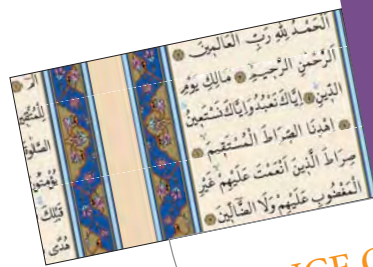 اَلْحَمْدُ لِلّٰهِ رَبِّ الْعَالَمِينَ
اَلرَّحْمٰنِ الرَّحِيمِ مَالِكِ يَوْمِ
الدِّينِ اِيَّاكَ نَعْبُدُ وَاِيَّاكَ نَسْتَعِينُ
اِهْدِنَا الصِّرَاطَ الْمُسْتَقِيمَ
صِرَاطَ الَّذِينَ اَنْعَمْتَ عَلَيْهِمْ غَيْرِ
الْمَغْضُوبِ عَلَيْهِمْ وَلَا الضَّالِّينَ
هُدًى